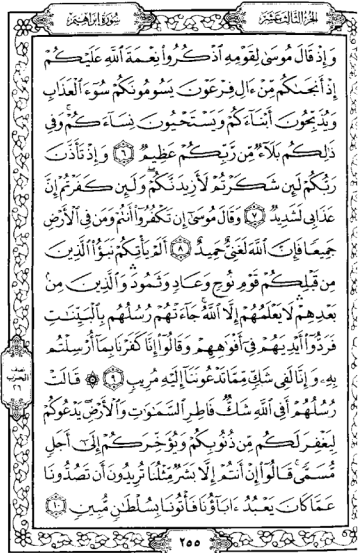 الجزء الثالث عشر
سورة إبراهيم
وَإِذْ قَالَ مُوسَىٰ لِقَوْمِهِ ٱذْكُرُوا۟ نِعْمَةَ ٱللَّهِ عَلَيْكُمْ
إِذْ أَنجَىٰكُم مِّنْ ءَالِ فِرْعَوْنَ يَسُومُونَكُمْ سُوٓءَ ٱلْعَذَابِ
وَيُذَبِّحُونَ أَبْنَآءَكُمْ وَيَسْتَحْيُونَ نِسَآءَكُمْ ۚ وَفِى
ذَٰلِكُم بَلَآءٌ مِّن رَّبِّكُمْ عَظِيمٌ ٦ وَإِذْ تَأَذَّنَ
رَبُّكُمْ لَئِن شَكَرْتُمْ لَأَزِيدَنَّكُمْ ۖ وَلَئِن كَفَرْتُمْ إِنَّ
عَذَابِى لَشَدِيدٌ ٧ وَقَالَ مُوسَىٰٓ إِن تَكْفُرُوٓا۟ أَنتُمْ وَمَن فِى ٱلْأَرْضِ
جَمِيعًا فَإِنَّ ٱللَّهَ لَغَنِىٌّ حَمِيدٌ ٨ أَلَمْ يَأْتِكُمْ نَبَؤُا۟ ٱلَّذِينَ
مِن قَبْلِكُمْ قَوْمِ نُوحٍ وَعَادٍ وَثَمُودَ ۛ وَٱلَّذِينَ مِنۢ
بَعْدِهِمْ ۛ لَا يَعْلَمُهُمْ إِلَّا ٱللَّهُ ۚ جَآءَتْهُمْ رُسُلُهُم بِٱلْبَيِّنَٰتِ
فَرَدُّوٓا۟ أَيْدِيَهُمْ فِىٓ أَفْوَٰهِهِمْ وَقَالُوٓا۟ إِنَّا كَفَرْنَا بِمَآ أُرْسِلْتُم
بِهِۦ وَإِنَّا لَفِى شَكٍّ مِّمَّا تَدْعُونَنَآ إِلَيْهِ مُرِيبٍ ٩ ۞ قَالَتْ
رُسُلُهُمْ أَفِى ٱللَّهِ شَكٌّ فَاطِرِ ٱلسَّمَٰوَٰتِ وَٱلْأَرْضِ ۖ يَدْعُوكُمْ
لِيَغْفِرَ لَكُم مِّن ذُنُوبِكُمْ وَيُؤَخِّرَكُمْ إِلَىٰٓ أَجَلٍ
مُّسَمًّى ۚ قَالُوٓا۟ إِنْ أَنتُمْ إِلَّا بَشَرٌ مِّثْلُنَا تُرِيدُونَ أَن تَصُدُّونَا
عَمَّا كَانَ يَعْبُدُ ءَابَآؤُنَا فَأْتُونَا بِسُلْطَٰنٍ مُّبِينٍ ١٠
نصف
الحزب
٢٦
٢٥٥